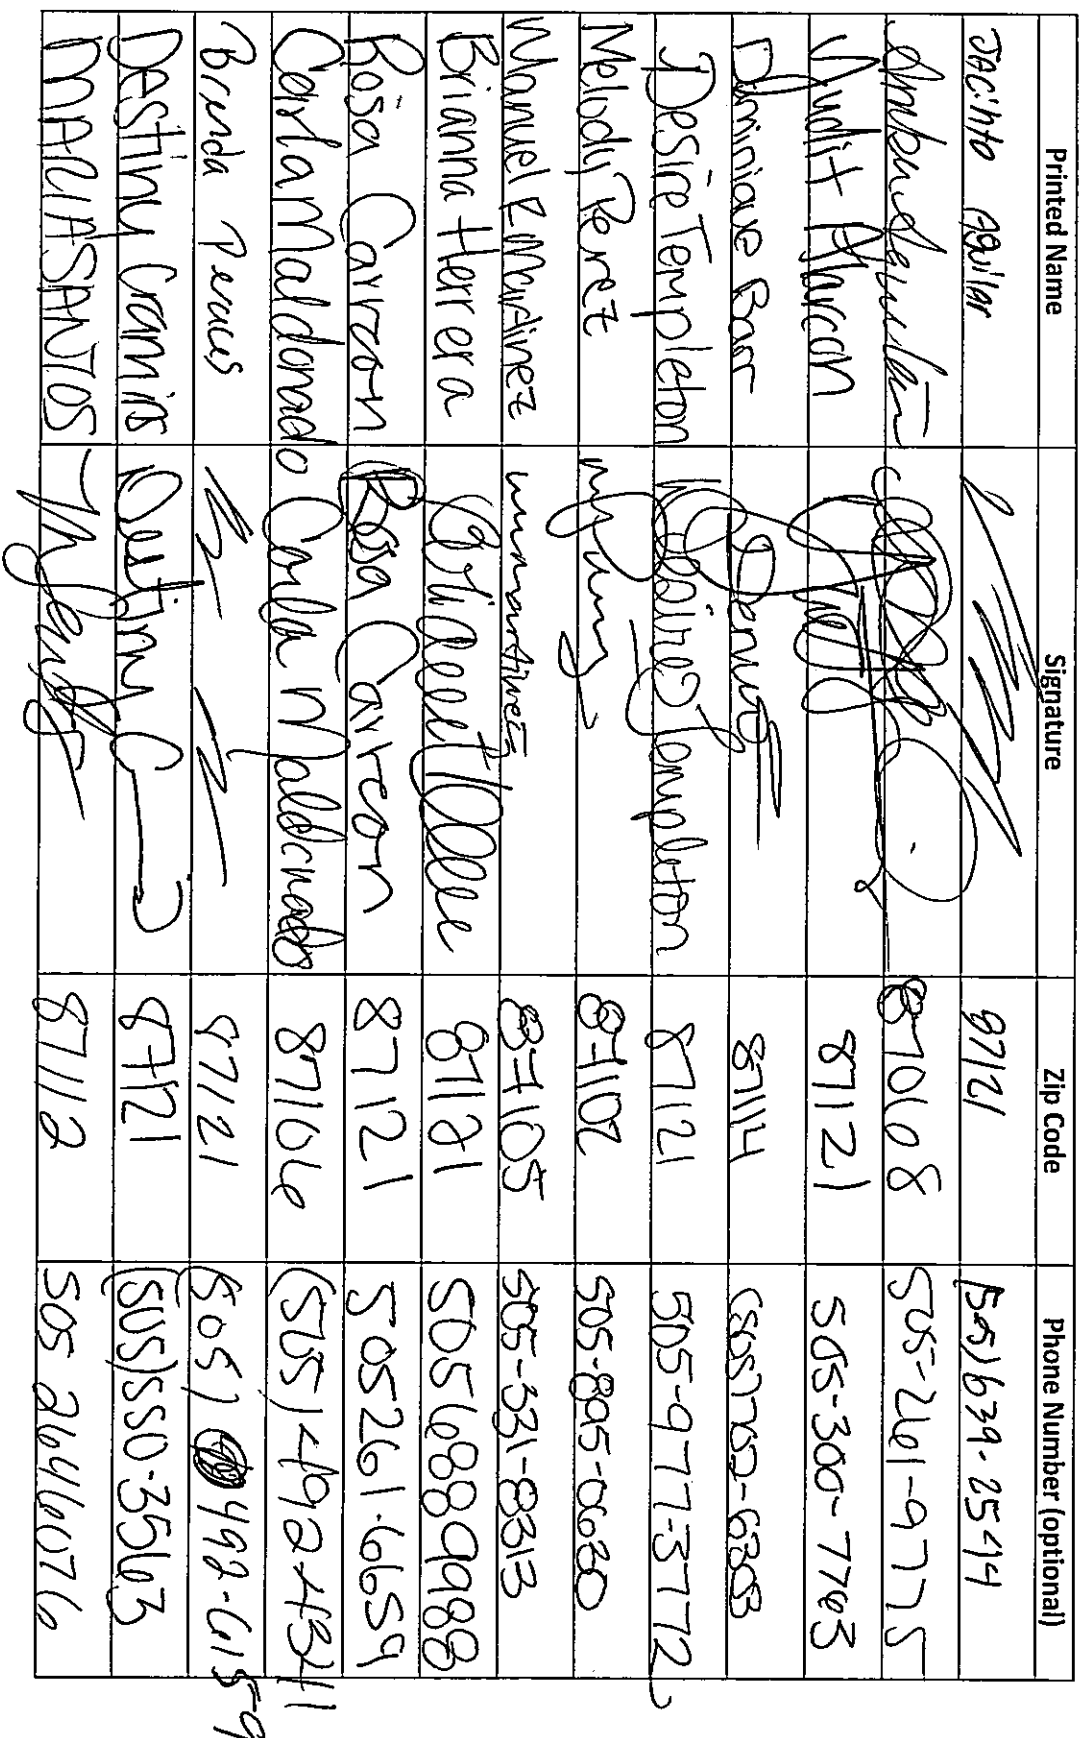 Printed Name Signature Zip Code Phone Number (optional)
Jacinto Aguilar 87121 (505) 639-2544
87068 505-261-9775
Judit Alarcon 87121 505-300-7763
Dominique Barr 87114 (505) 702-6303
Desire Templeton Desiree Templeton 87121 505-977-3772
Melody Perez 87102 505-895-0630
Manuel E Martinez mmartinez 87105 505-331-8313
Brianna Herrera 87121 5056889988
Rosa Carreon Rosa Carreon 87121 505261-6659
Carla Maldonado Carla Maldonado 87106 (505) 492-4341
Brenda 87121 (505) 492-6159
Destiny Destiny C 87121 (505)550-3563
MARIA SANTOS 87112 505 2646076